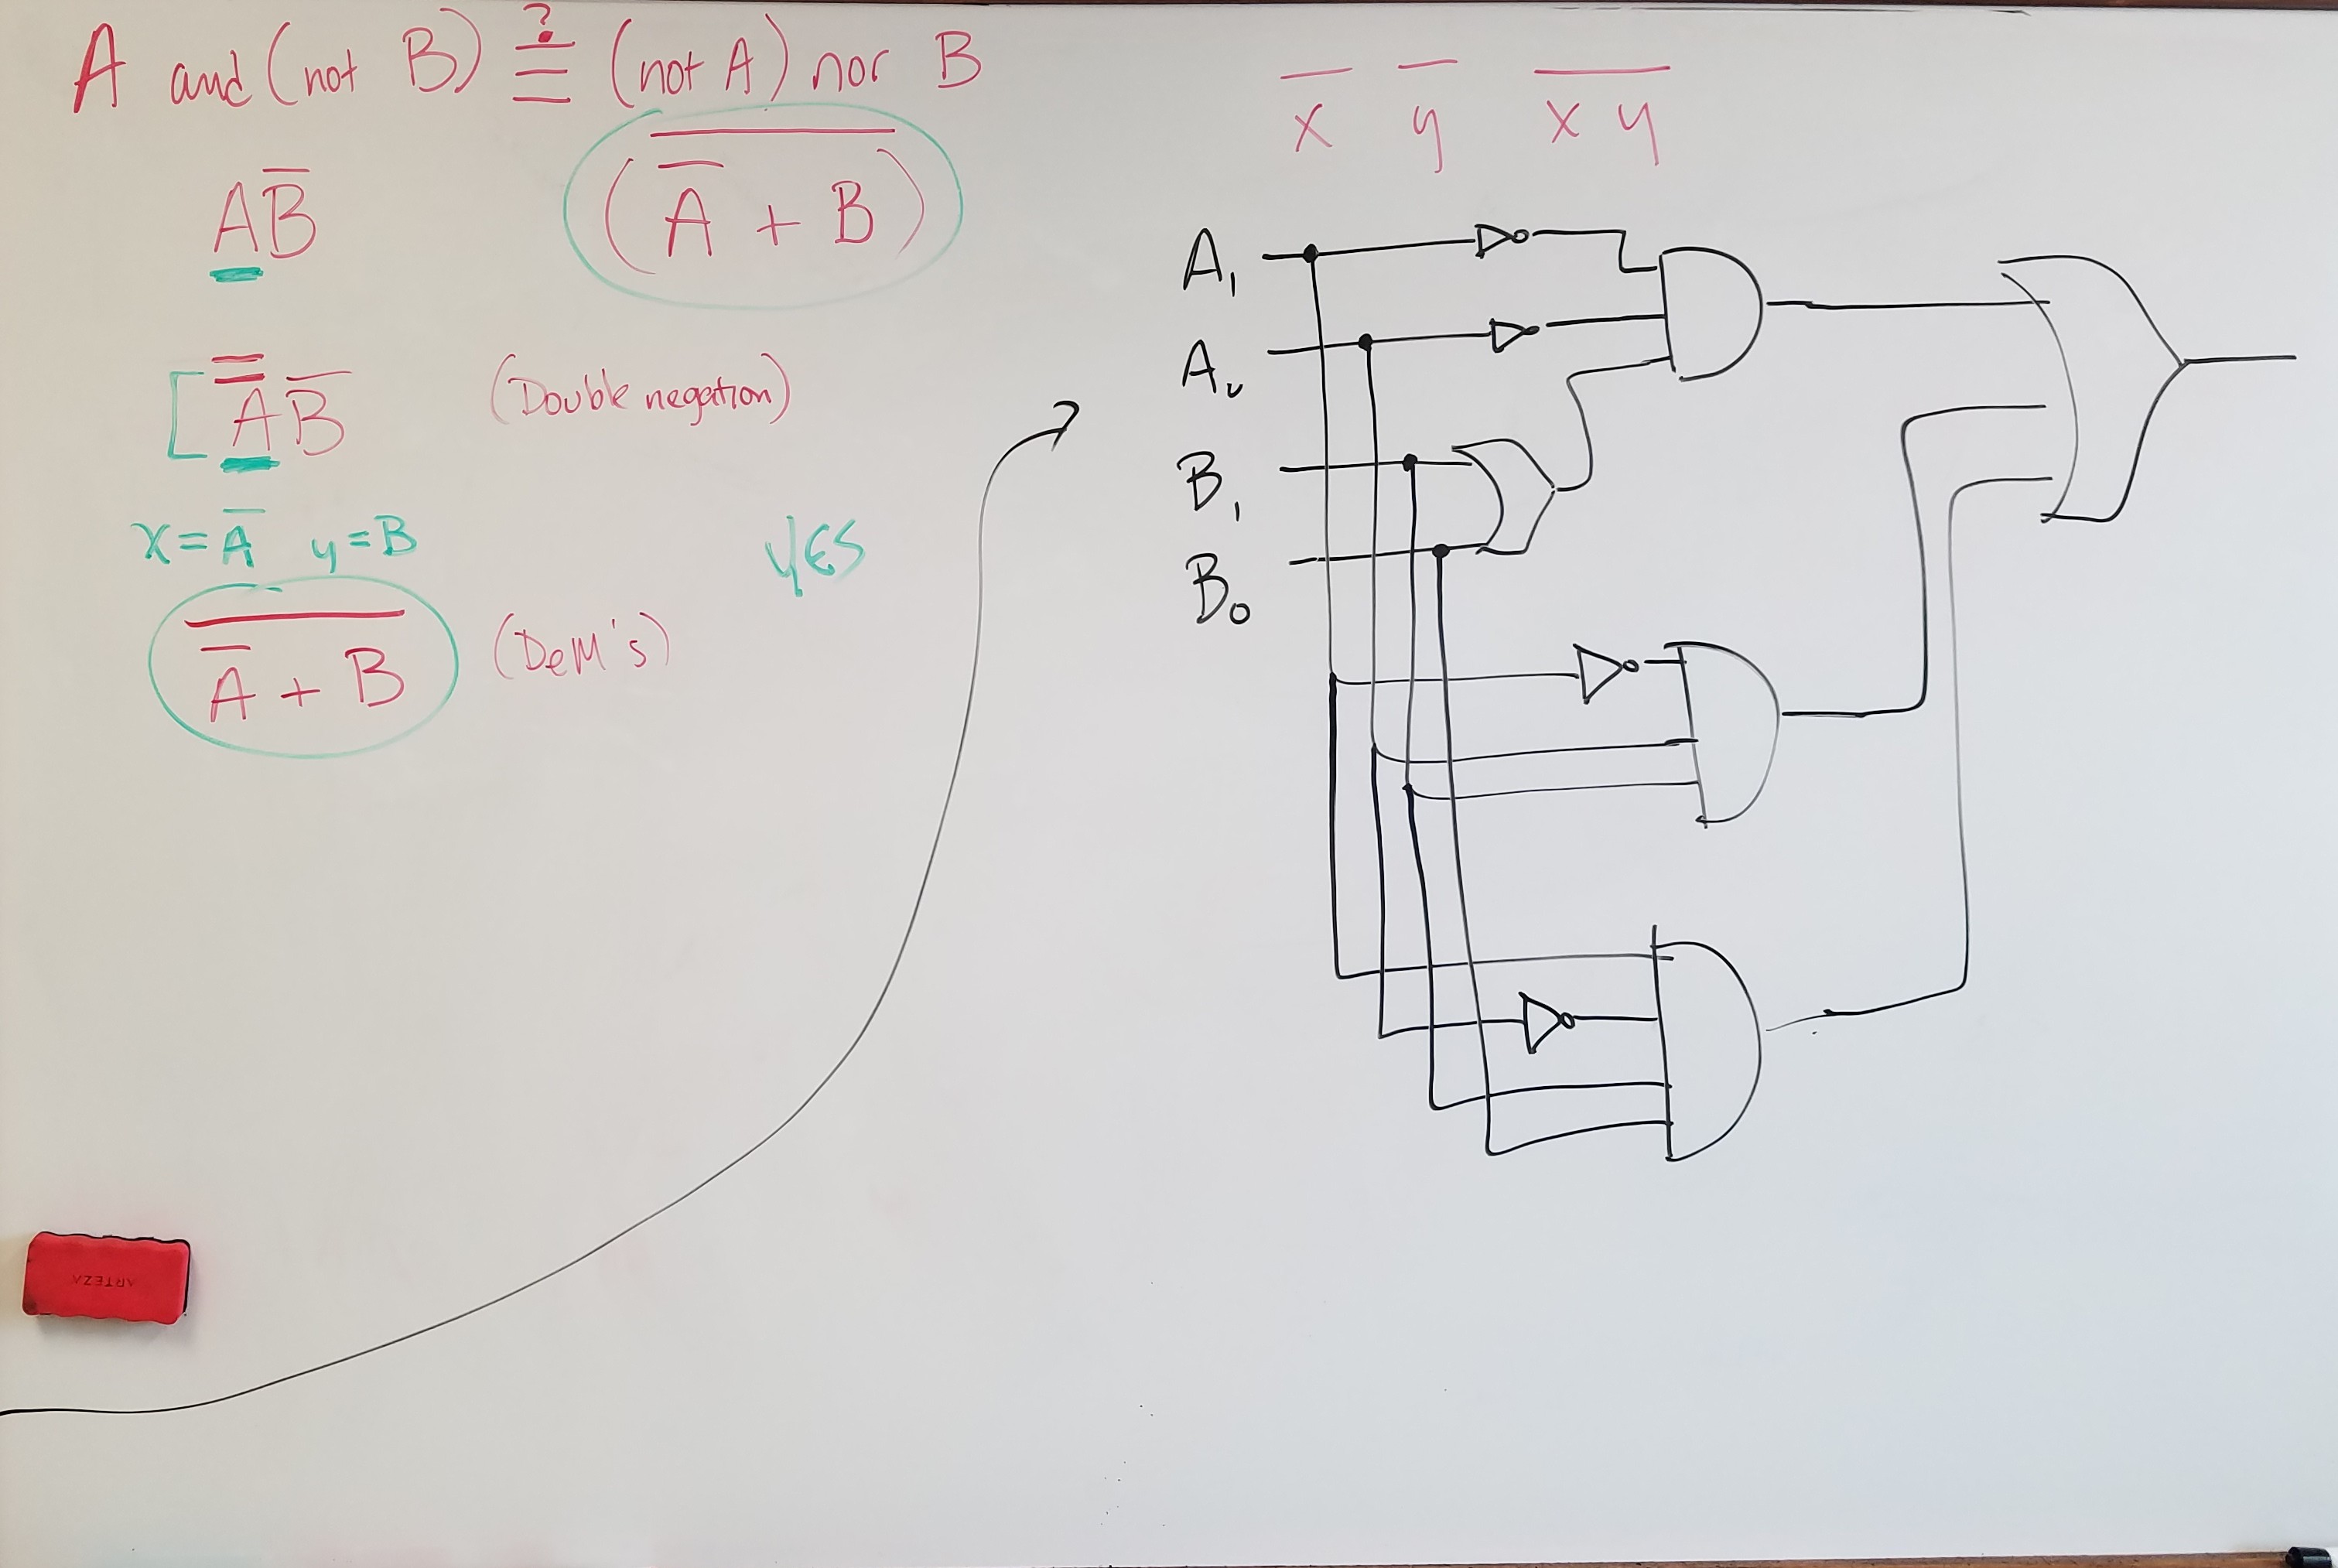 A and (not B) ≟ (not A) nor B
AB̅
(A̅ + B)̅
A̿B̅ (Double negation)
x = A̅ y = B
YES
A̅ + B̅ (DeM's)
x̅ y̅ x̅y̅
A₁
A₀
B₁
B₀
ARTEZA